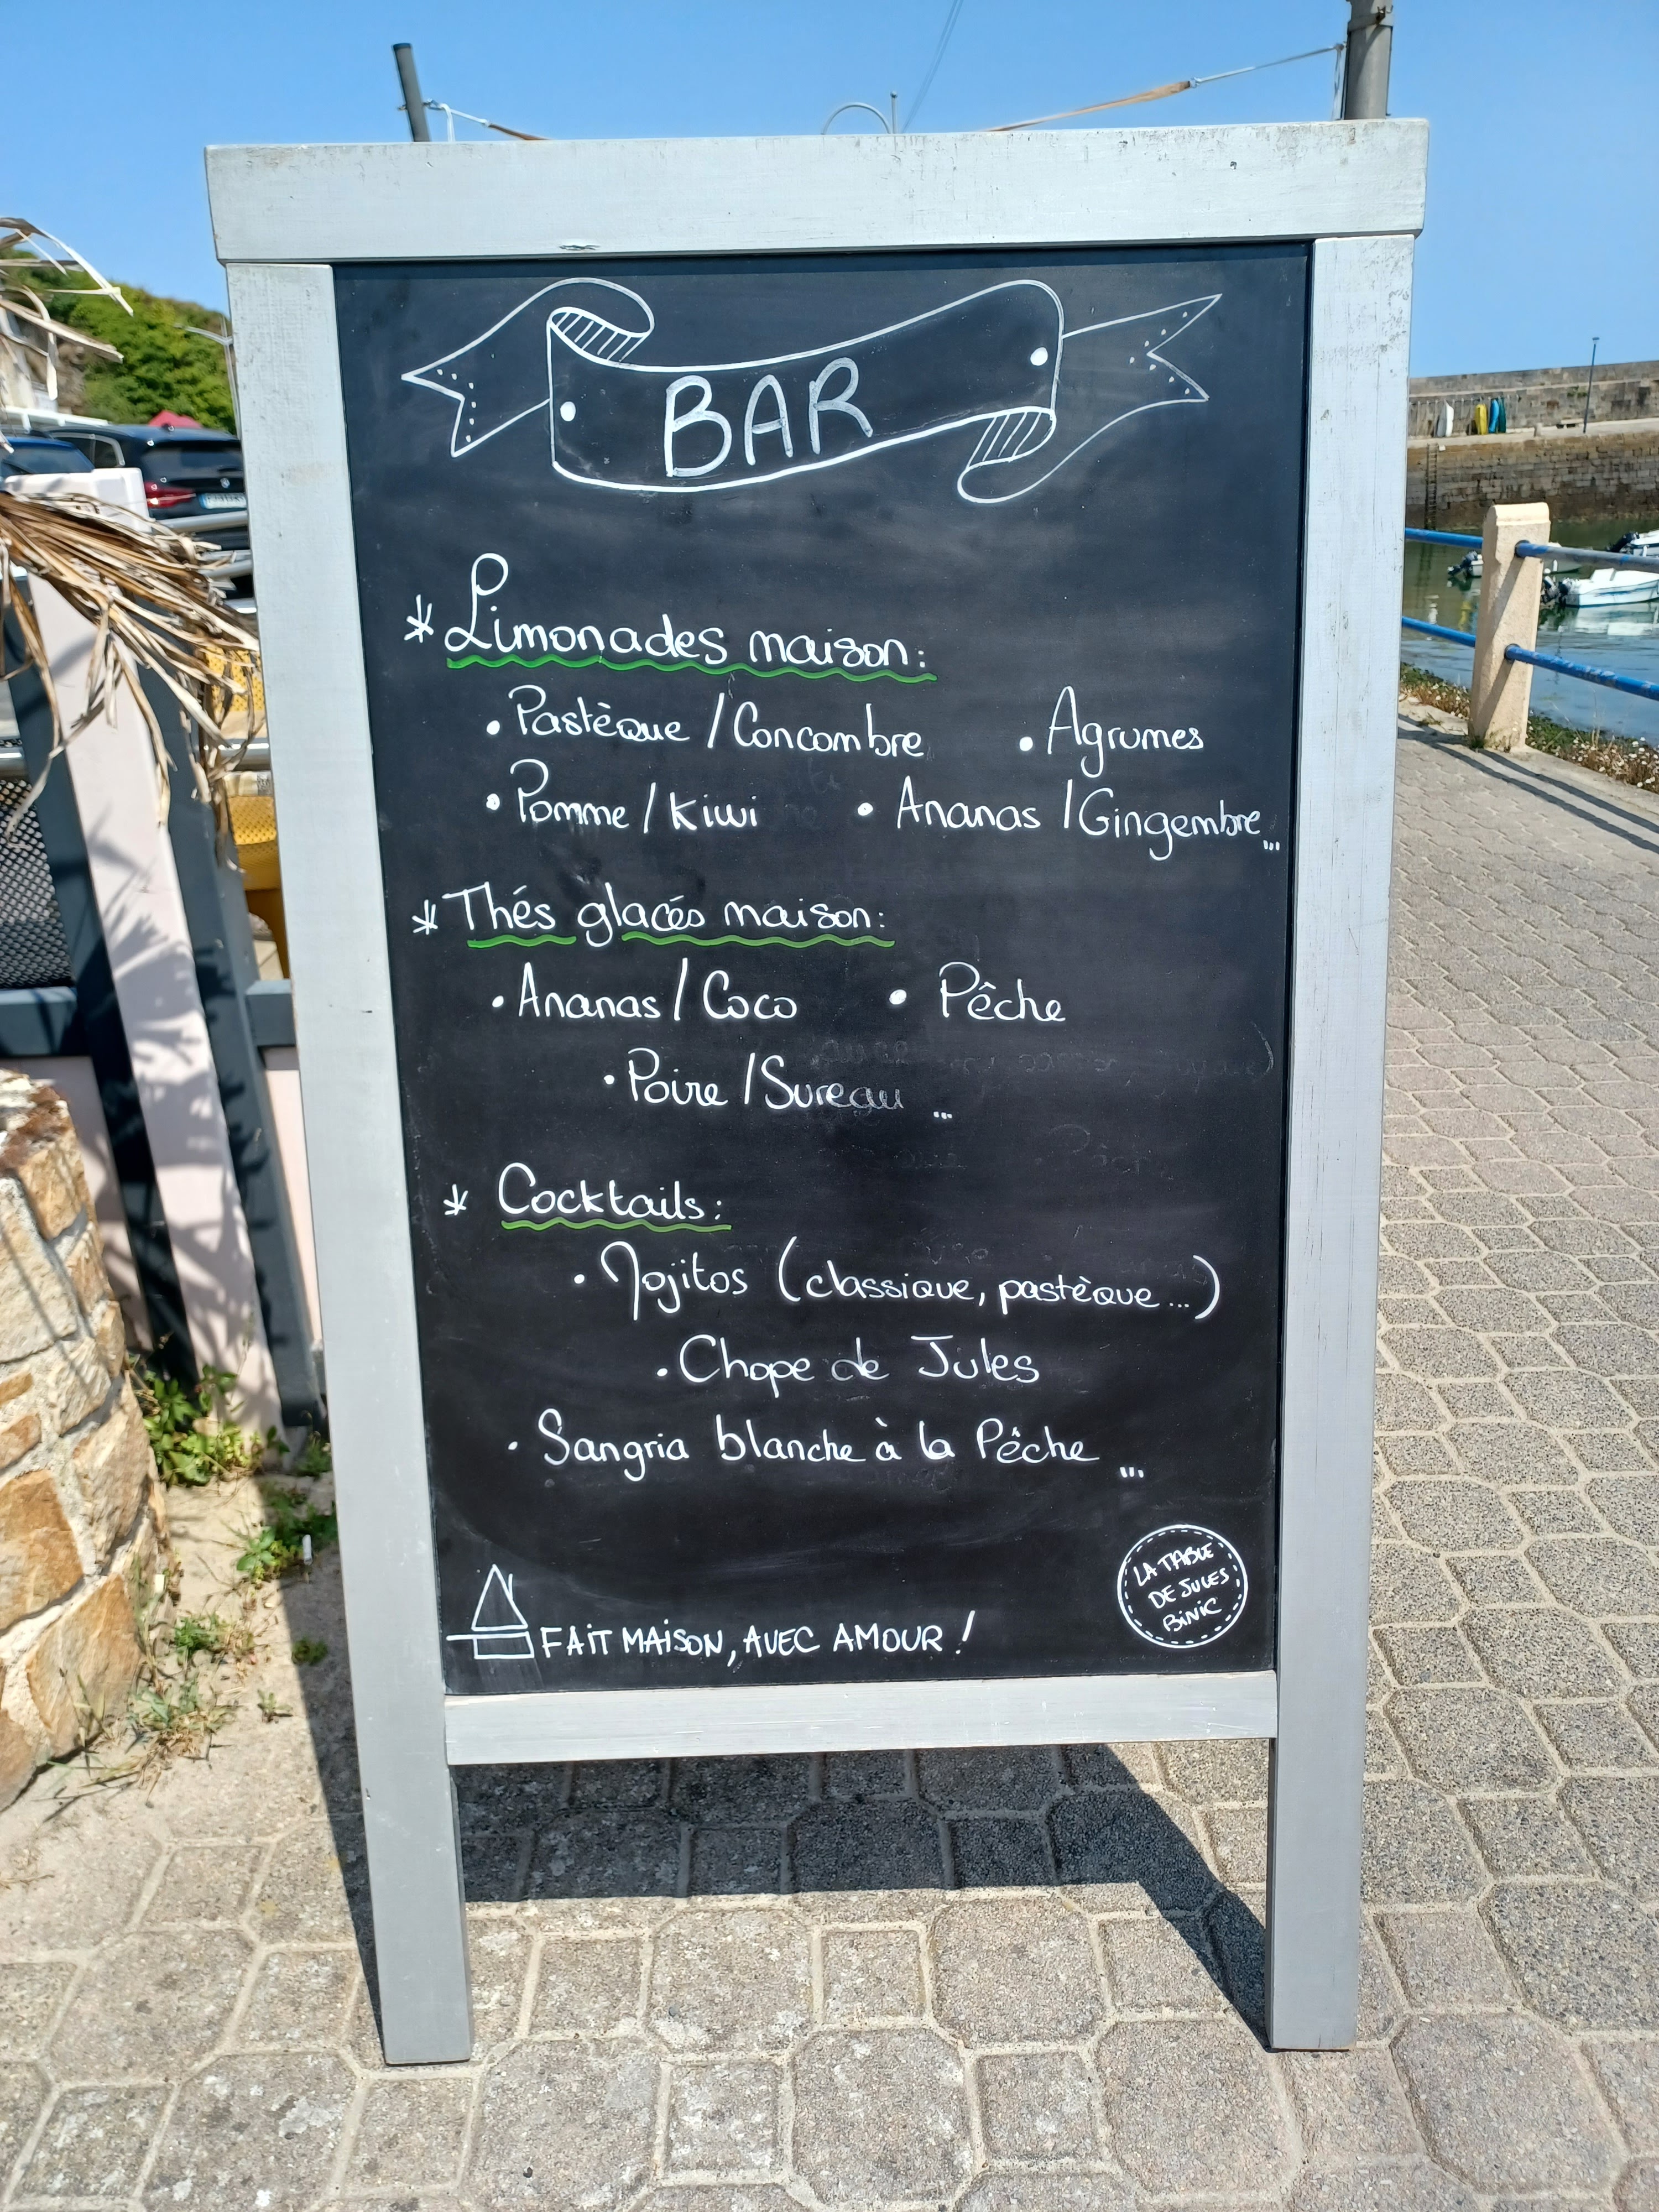 BAR
* Limonades maison :
• Pastèque / Concombre • Agrumes
• Pomme / Kiwi • Ananas / Gingembre...
* Thés glacés maison :
• Ananas / Coco • Pêche
• Poire / Sureau ...
* Cocktails :
• Mojitos (classique, pastèque...)
• Chope de Jules
• Sangria blanche à la Pêche ...
FAiT MAiSON, AVEC AMOUR !
LA TABLE
DE JULES
BiNiC